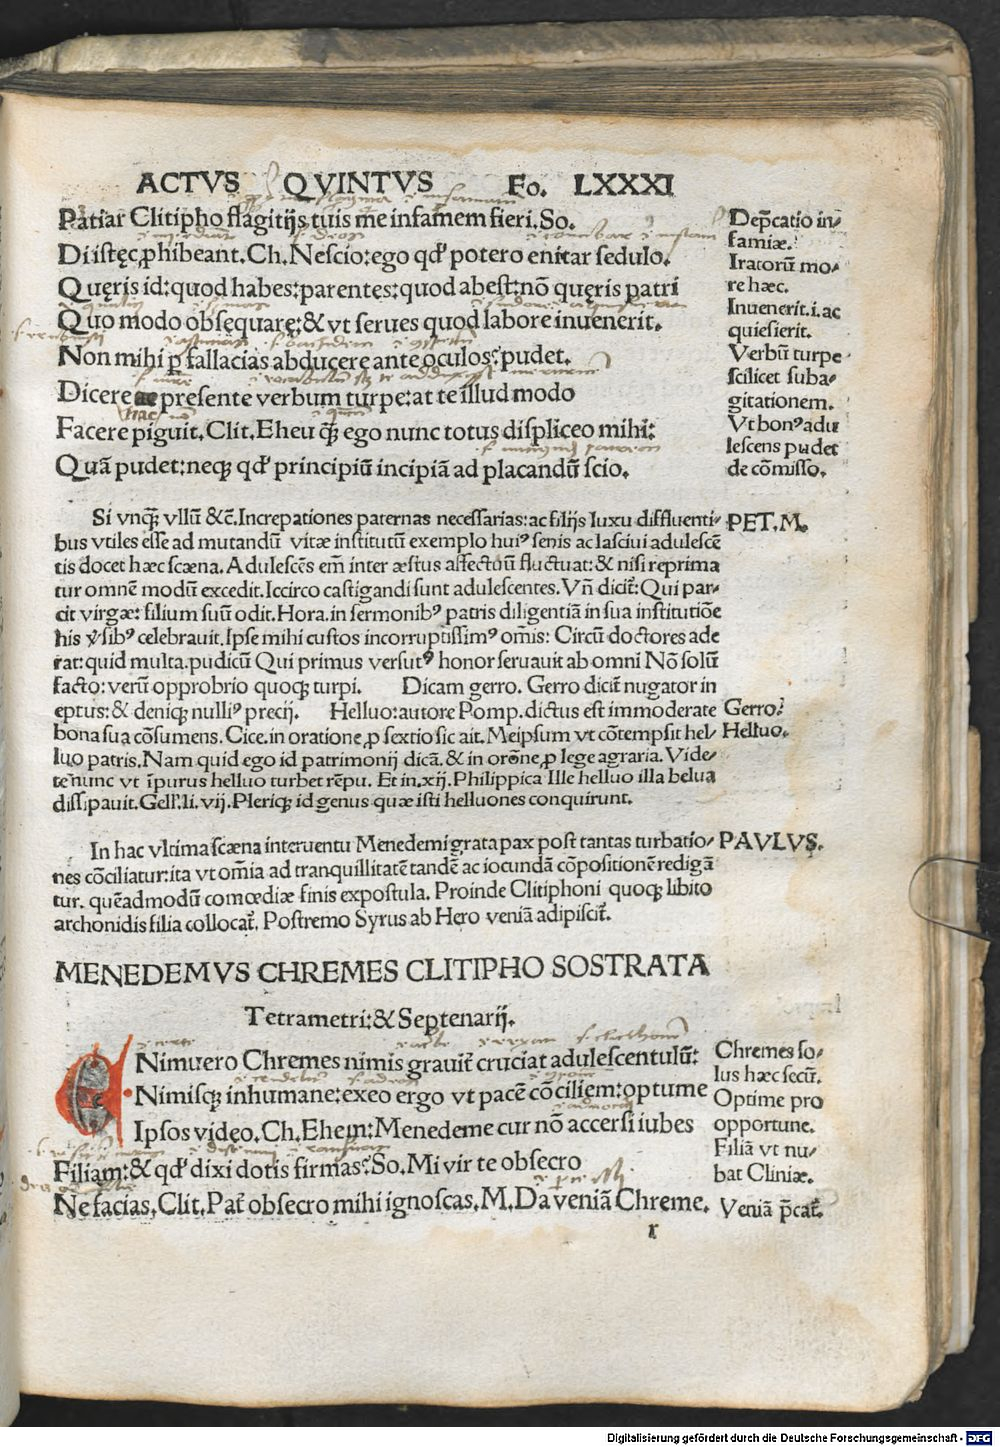 ACTVS QVINTVS Fo. LXXXI
Patiar Clitipho flagitijs tuis me infamem fieri. So.
Di istęc ꝓhibeant. Ch. Nescio: ego qd' potero enitar sedulo.
Quęris id: quod habes: parentes: quod abest: nō quęris patri
Quo modo obsequare: & vt serues quod labore inuenerit.
Non mihi ꝑ fallacias abducere ante oculos: pudet.
Dicere presente verbum turpe: at te illud modo
Facere piguit. Clit. Eheu q̄ꝫ ego nunc totus displiceo mihi:
Quā pudet: neqꝫ qd' principiū incipiā ad placandū scio.
Dep̄catio in-
famiæ.
Iratorū mo-
re hæc.
Inuenerit. i. ac
quiesierit.
Verbū turpe
scilicet suba-
gitationem.
Vt bonꝰ adu
lescens pudet
de cōmisso.
Si vnq̄ꝫ vllū &c̄. Increpationes paternas necessarias: ac filijs luxu diffluenti-
bus vtiles esse ad mutandū vitæ institutū exemplo huiꝰ senis ac lasciui adulescē
tis docet hæc scæna. Adulescēs em̄ inter æstus affectoūū fluctuat: & nisi reprima
tur omnē modū excedit. Iccirco castigandi sunt adulescentes. Vn̄ dicit̄: Qui par-
cit virgæ: filium suū odit. Hora. in sermonibꝰ patris diligentiā in sua institutiōe
his ꝟsibꝰ celebrauit. Ipse mihi custos incorruptissimꝰ om̄is: Circū doctores ade
rat: quid multa. pudicū Qui primus versutꝰ honor seruauit ab omni Nō solū
facto: verū opprobrio quoqꝫ turpi. Dicam gerro. Gerro dicit̄ nugator in
eptus: & deniqꝫ nulliꝰ precij. Helluo: autore Pomp. dictus est immoderate
bona sua cōsumens. Cice. in oratione ꝓ sextio sic ait. Meipsum vt cōtempsit hel-
luo patris. Nam quid ego id patrimonij dicā. & in orōne ꝓ lege agraria. Vide-
te nunc vt īpurus helluo turbet rēpu. Et in. xij. Philippica Ille helluo illa belua
dissipauit. Gell'. li. vij. Pleriqꝫ id genus quæ isti helluones conquirunt.
PET. M.
Gerro.
Helluo.
In hac vltima scæna interuentu Menedemi grata pax post tantas turbatio-
nes cōciliatur: ita vt om̄ia ad tranquillitatē tandē ac iocundā cōpositionē redigā
tur. quēadmodū comœdiæ finis expostula. Proinde Clitiphoni quoqꝫ libito
archonidis filia collocat̄. Postremo Syrus ab Hero veniā adipiscit̄.
PAVLVS.
MENEDEMVS CHREMES CLITIPHO SOSTRATA
Tetrametri: & Septenarij.
ENimuero Chremes nimis grauit̄ cruciat adulescentulū:
Nimisqꝫ inhumane: exeo ergo vt pacē cōciliem: optume
Ipsos video. Ch. Ehem: Menedeme cur nō accersi iubes
Filiam: & qd' dixi dotis firmas? So. Mi vir te obsecro
Ne facias. Clit. Pat̄ obsecro mihi ignoscas. M. Da veniā Chreme.
Chremes so-
lus hæc secū.
Optime pro
opportune.
Filiā vt nu-
bat Cliniæ.
Veniā p̄cat̄.
r
Digitalisierung gefördert durch die Deutsche Forschungsgemeinschaft - DFG